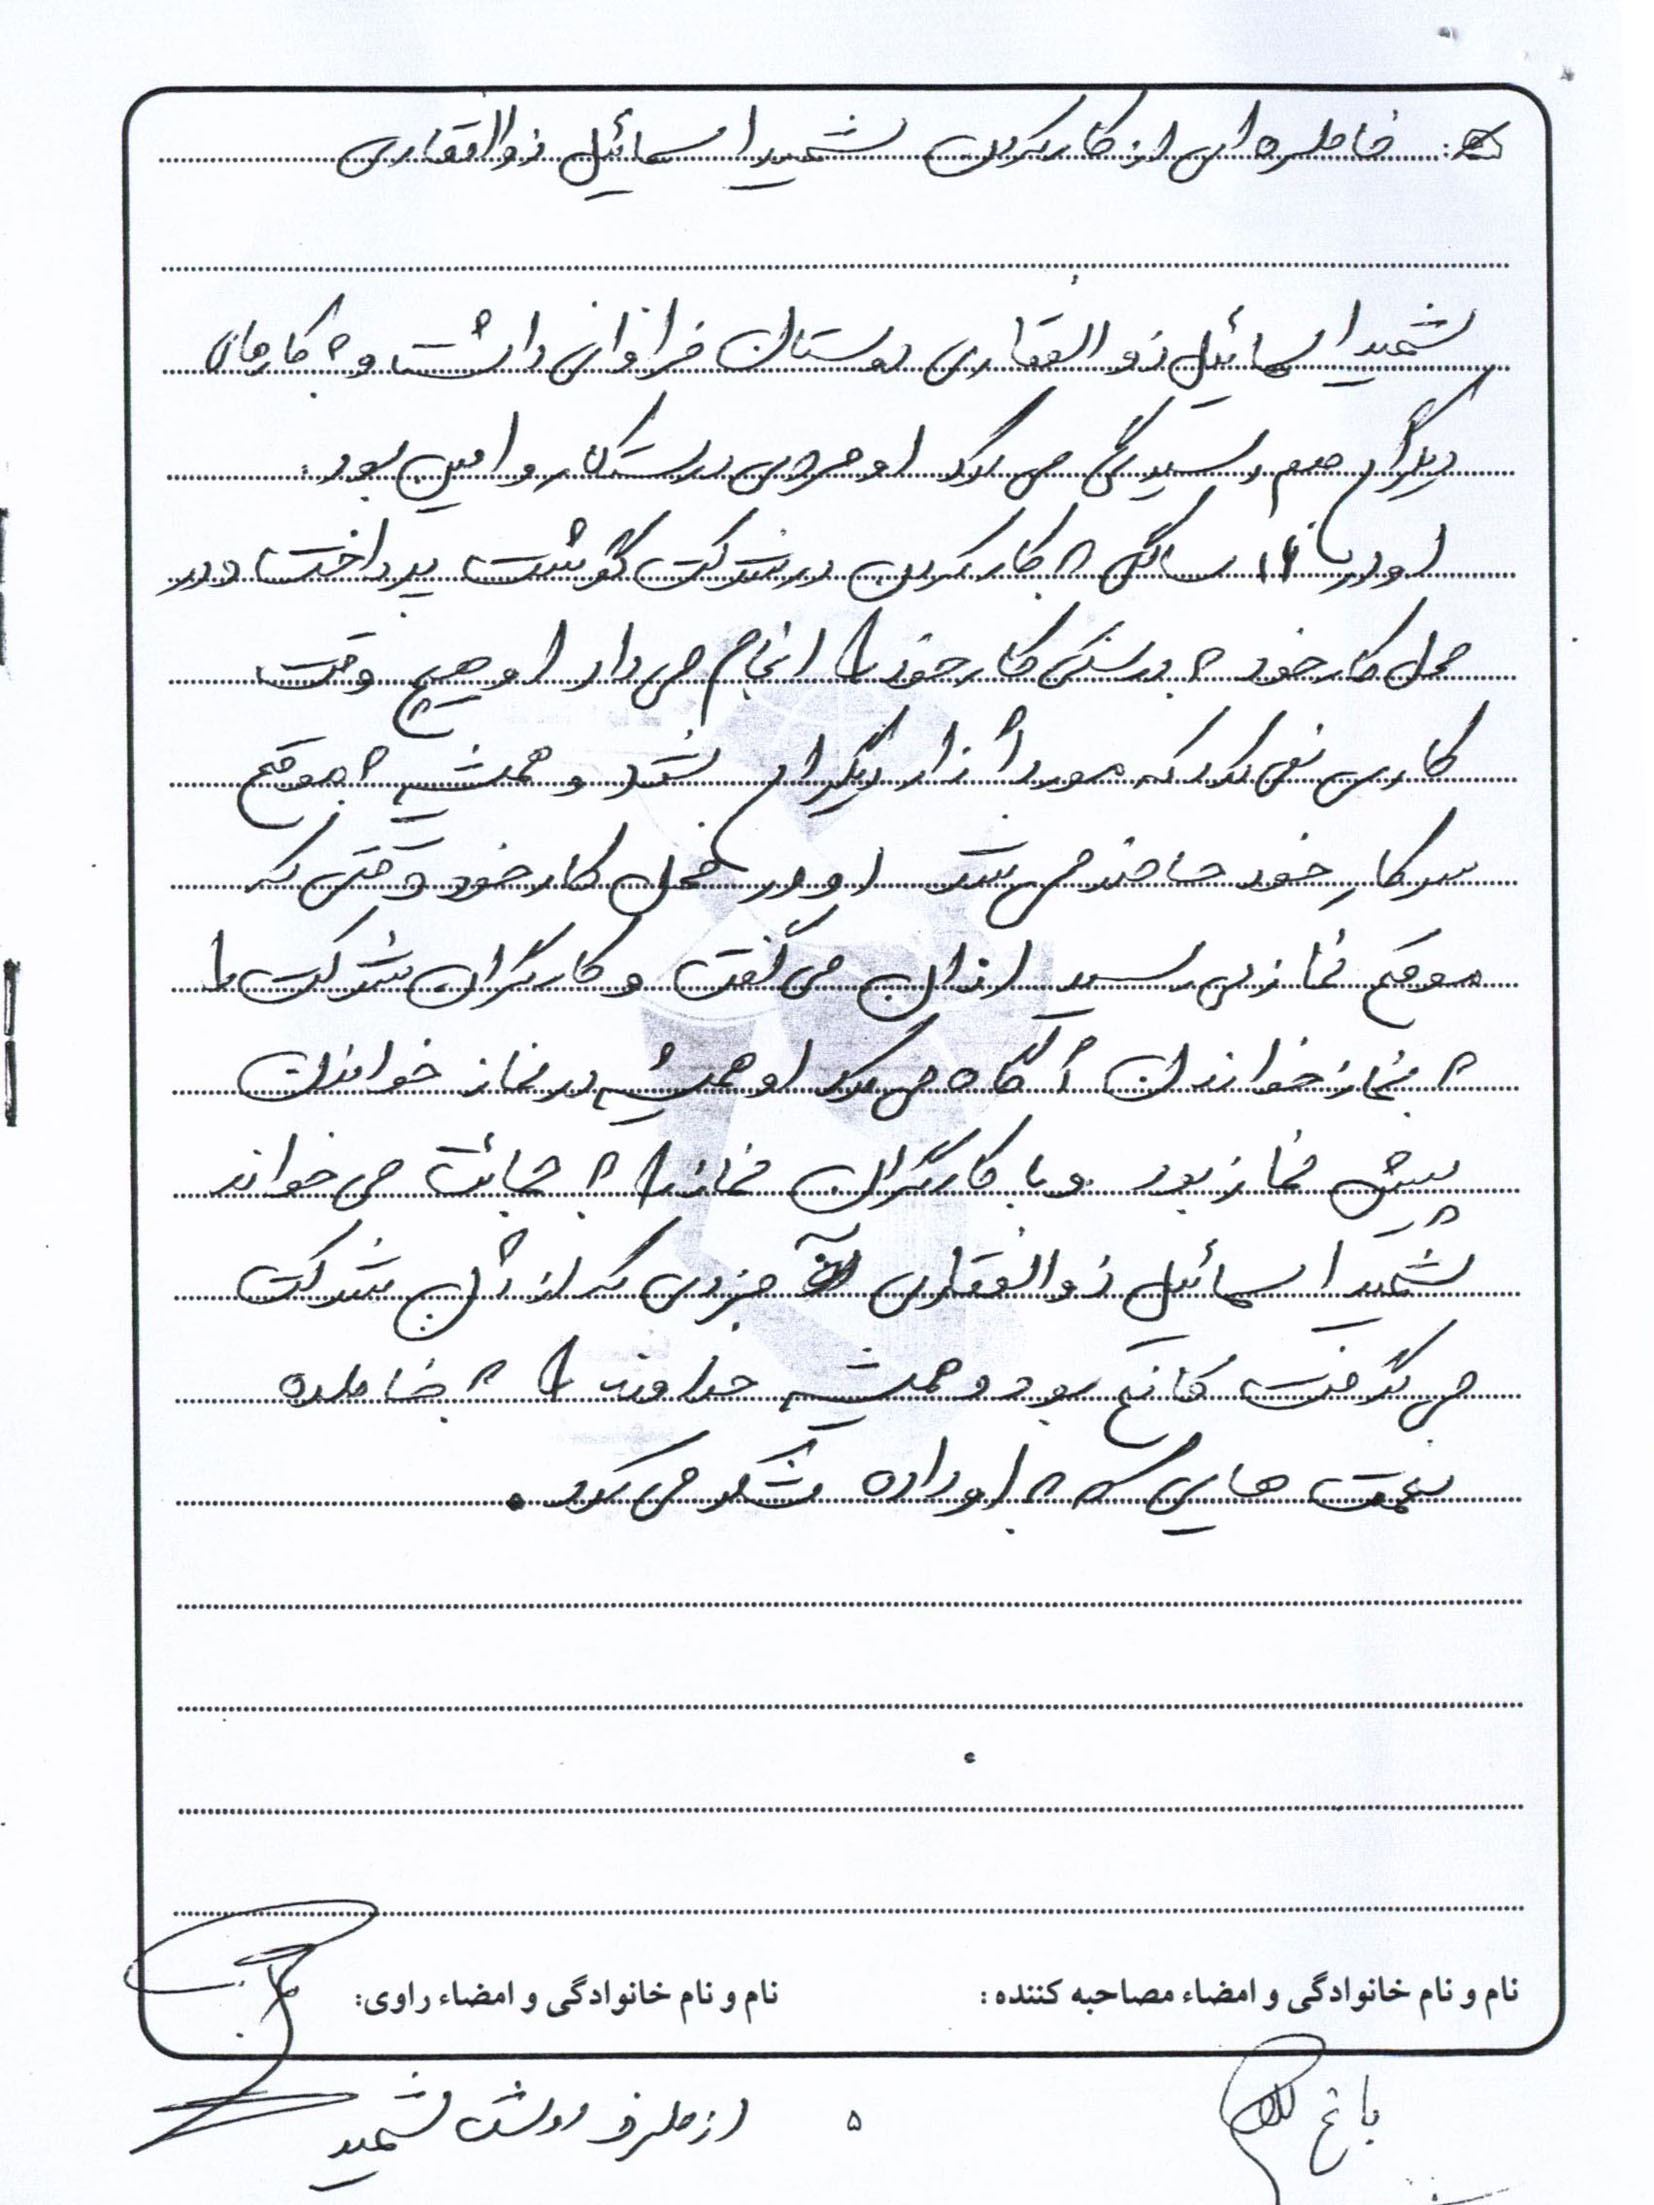 خاطره ای از کار کردن شهید اسمائیل ذوالفقاری
شهید اسمائیل ذوالفقاری دوستان فراوانی داشت و به کارهای
دیگران هم رسیدگی می کرد او مردی درستکار و امین بود.
او در سالگی به کار کردن در شرکت گوشت پرداخت و در
محل کار خود به درستی کار خود را انجام می داد او هیچ وقت
کاری نمی کرد که مورد آزار دیگران بشود و همیشه به موقع
سر کار خود حاضر می شد او در محل کار خود وقتی که
موقع نماز می رسید اذان می گفت و کارگران شرکت را
به نماز خواندن آگاه می کرد او همیشه در نماز خواندن
پیش نماز بود و با کارگران نماز را به جمائت می خواند
شهید اسمائیل ذوالفقاری مزدی که از آن شرکت
می گرفت کانع بود و همیشه خداوند را به خاطره
نعمت هایی که به او داده شکر می کرد.
نام و نام خانوادگی و امضاء مصاحبه کننده: نام و نام خانوادگی و امضاء راوی:
از طرف دوست شهید
۵